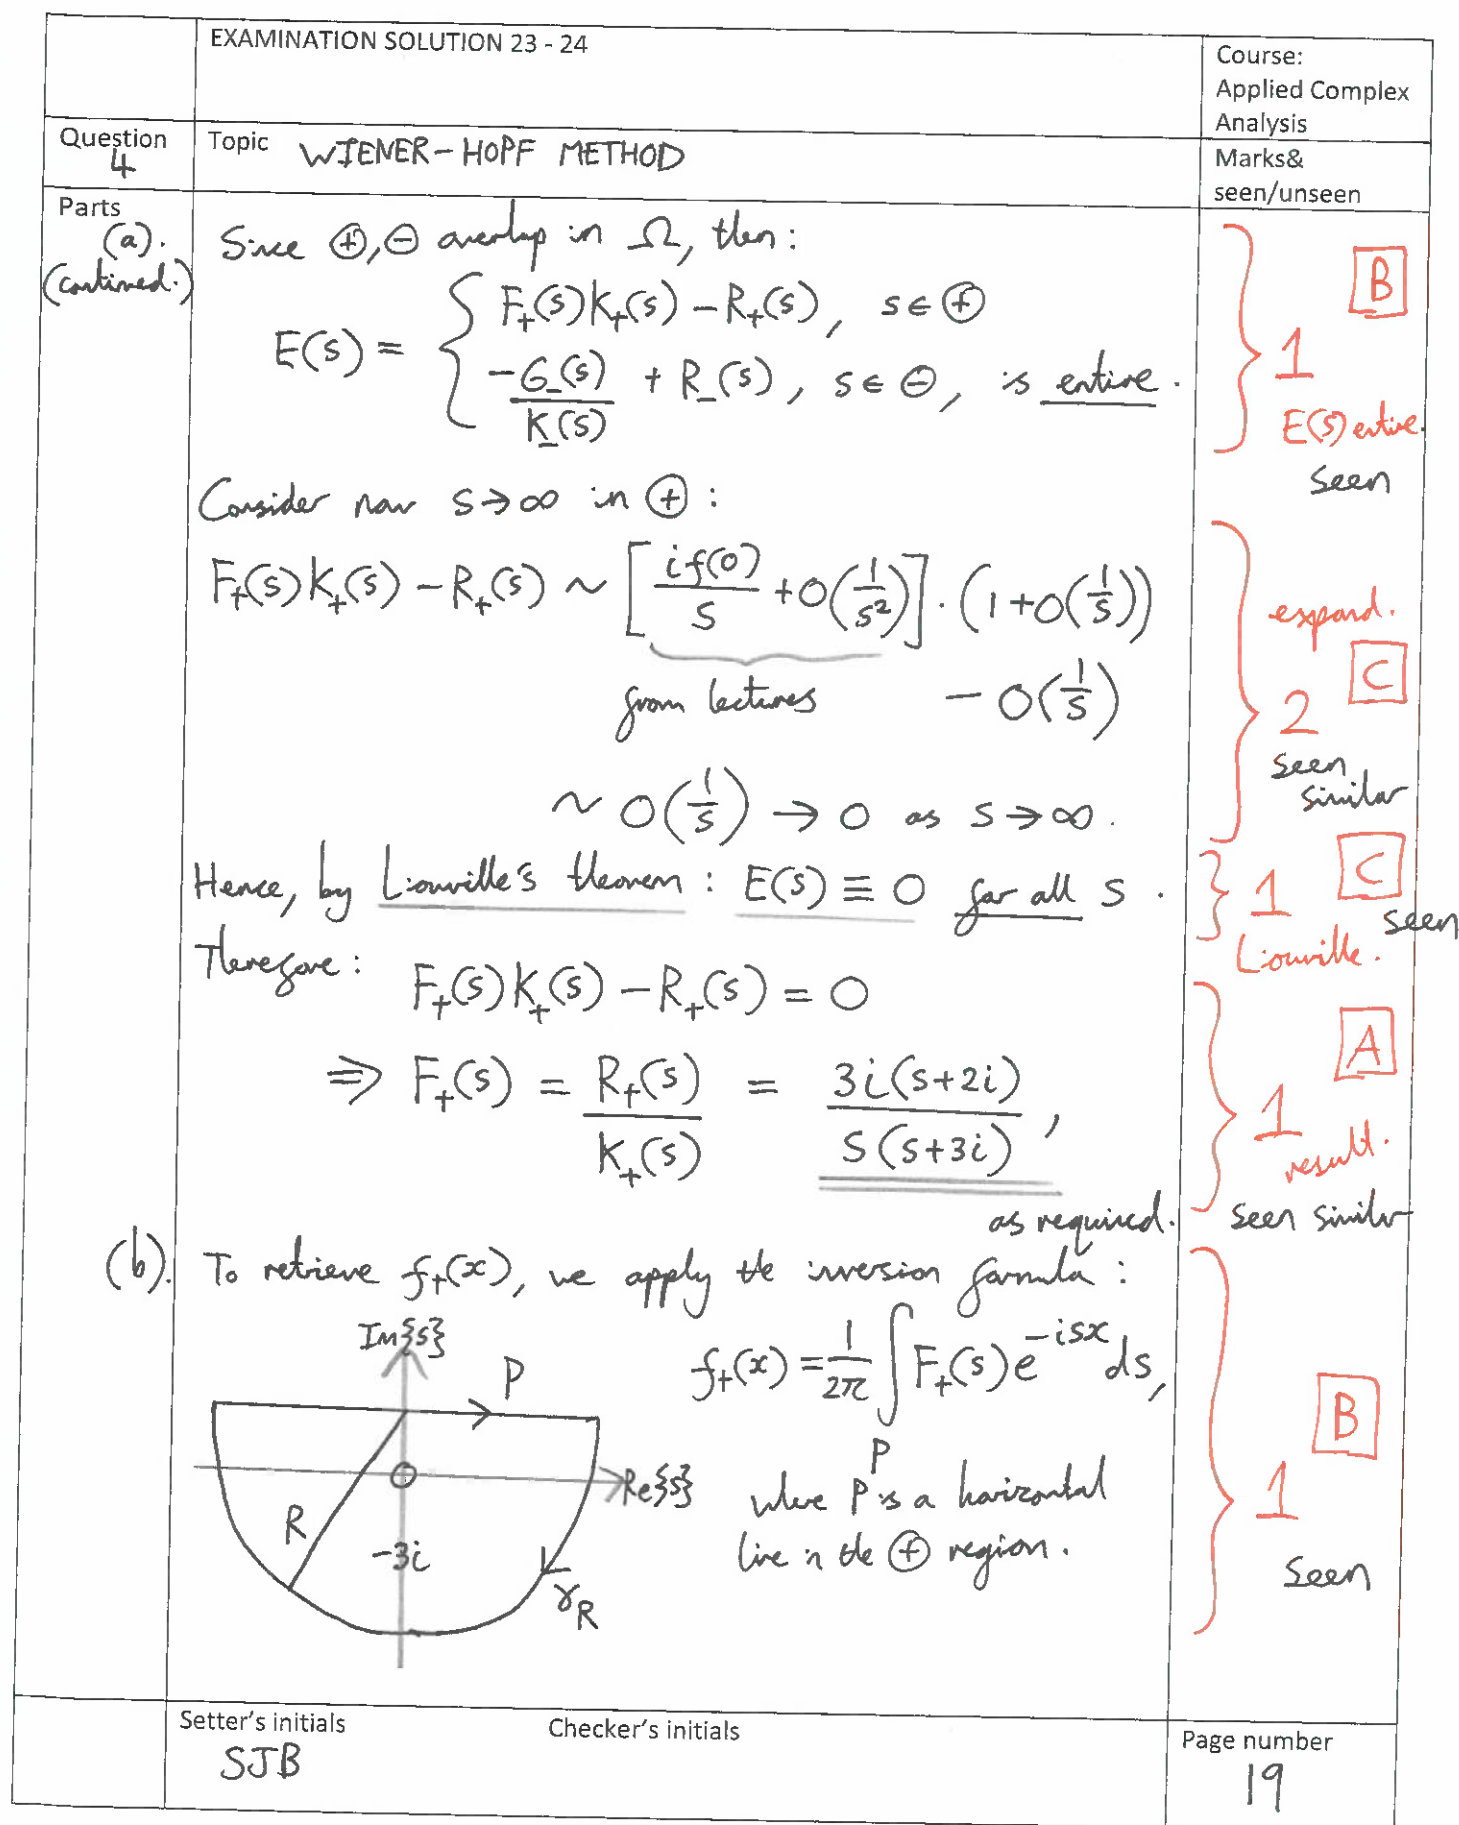 EXAMINATION SOLUTION 23 - 24
Course:
Applied Complex
Analysis
Question
4
Topic WIENER-HOPF METHOD
Marks&
seen/unseen
Parts
(a).
(continued.)
Since ⊕, ⊖ overlap in Ω, then:
E(s) = { F₊(s)K₊(s) – R₊(s), s ∈ ⊕
-G₋(s)/K₋(s) + R₋(s), s ∈ ⊖, is entire.
B
1
E(s) entire.
Seen
Consider now s → ∞ in ⊕:
F₊(s)K₊(s) – R₊(s) ~ [ if(0)/s + O(1/s²) ] . (1 + O(1/s))
from lectures – O(1/s)
expand.
C
2
seen
similar
~ O(1/s) → 0 as s → ∞.
Hence, by Liouville's theorem: E(s) ≡ 0 for all s.
C
1
seen
Liouville.
Therefore:
F₊(s)K₊(s) – R₊(s) = 0
⇒ F₊(s) = R₊(s)/K₊(s) = 3i(s+2i)/s(s+3i),
as required.
A
1
result.
seen similar
(b). To retrieve f₊(x), we apply the inversion formula:
Im{s}
P
f₊(x) = 1/2π ∫ F₊(s)e^{-isx} ds,
P
O
Re{s}
where P is a horizontal
line in the ⊕ region.
R
-3i
γ_R
B
1
Seen
Setter's initials
SJB
Checker's initials
Page number
19